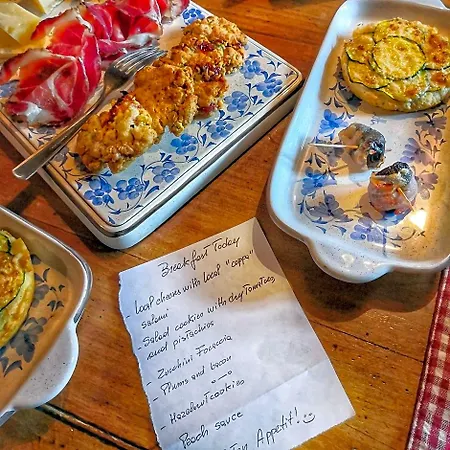 Breakfast Today
Local cheeses with local "coppa"
salumi
- Salad cookies with dry tomatoes
and pistachios
- Zucchini Focaccia
- Plums and bacon
- Hazelnut cookies
Peach sauce
Bon Appetit! :)